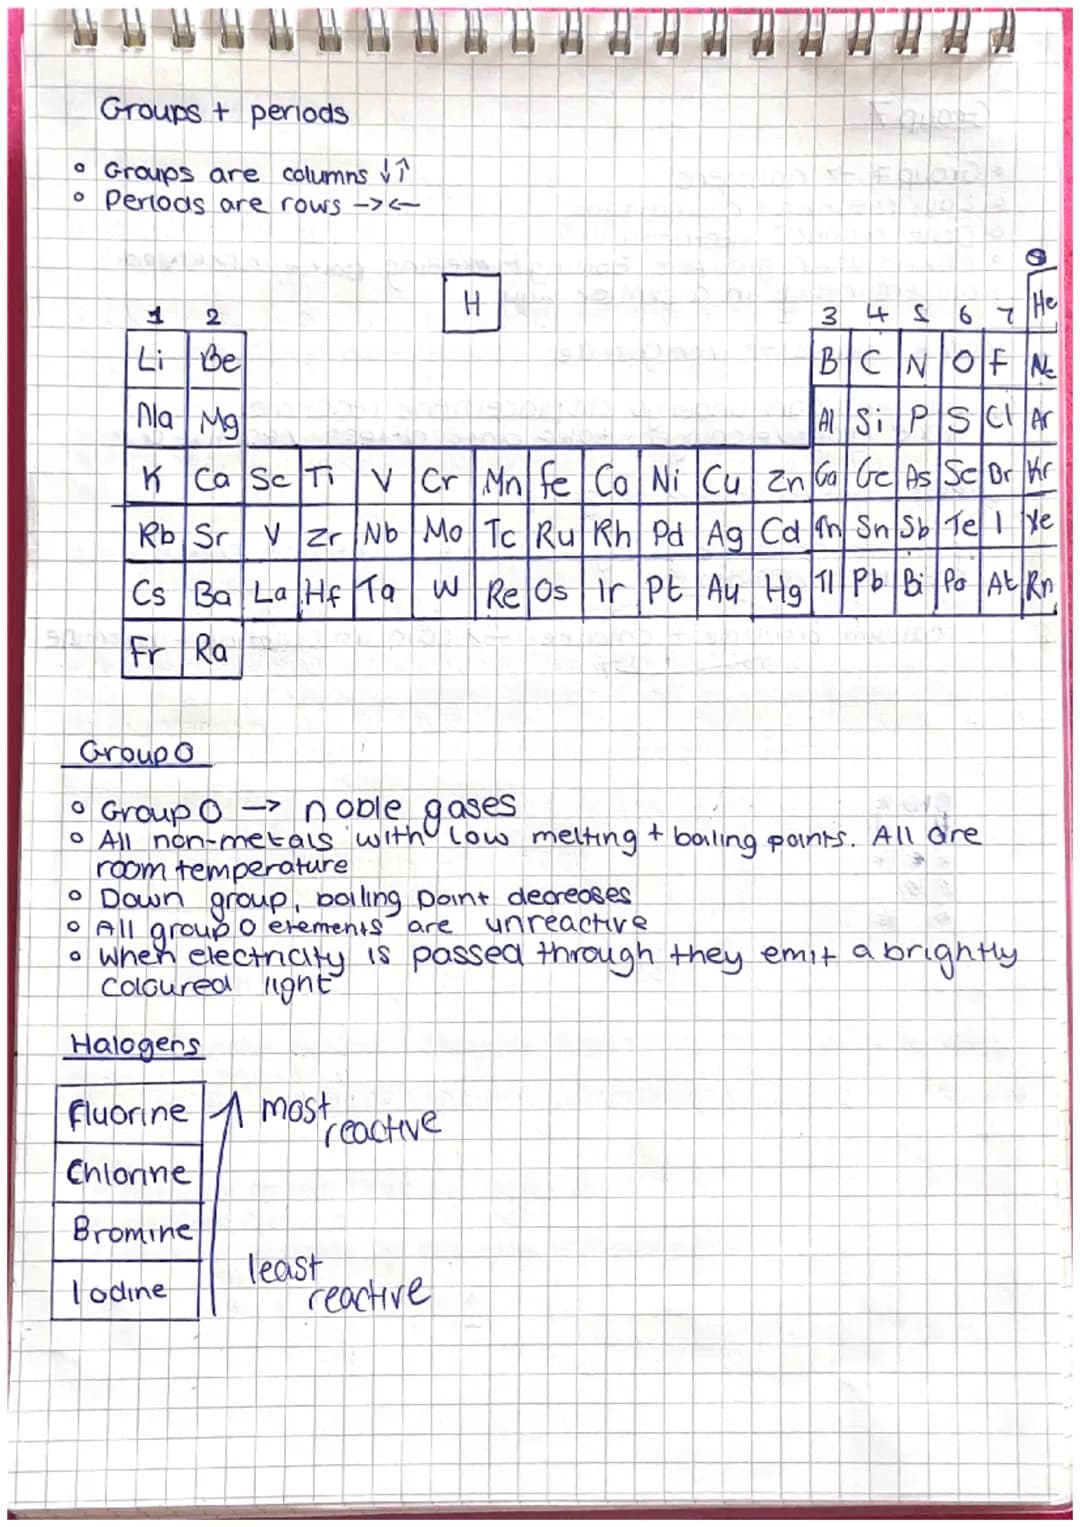 Groups + periods
◦ Groups are columns ↓↑
◦ Periods are rows →←
0
H He
1 2 3 4 5 6 7
Li Be B C N O F Ne
Na Mg Al Si P S Cl Ar
K Ca Sc Ti V Cr Mn Fe Co Ni Cu Zn Ga Ge As Se Br Kr
Rb Sr V Zr Nb Mo Tc Ru Rh Pd Ag Cd In Sn Sb Te I Xe
Cs Ba La Hf Ta W Re Os Ir Pt Au Hg Tl Pb Bi Po At Rn
Fr Ra
Group 0
◦ Group 0 → noble gases
◦ All non-metals with low melting + boiling points. All are
room temperature
◦ Down group, boiling point decreases
◦ All group 0 elements are unreactive
◦ When electricity is passed through they emit a brightly
coloured light
Halogens
Fluorine ↑ most
reactive
Chlorine
Bromine
least
Iodine reactive